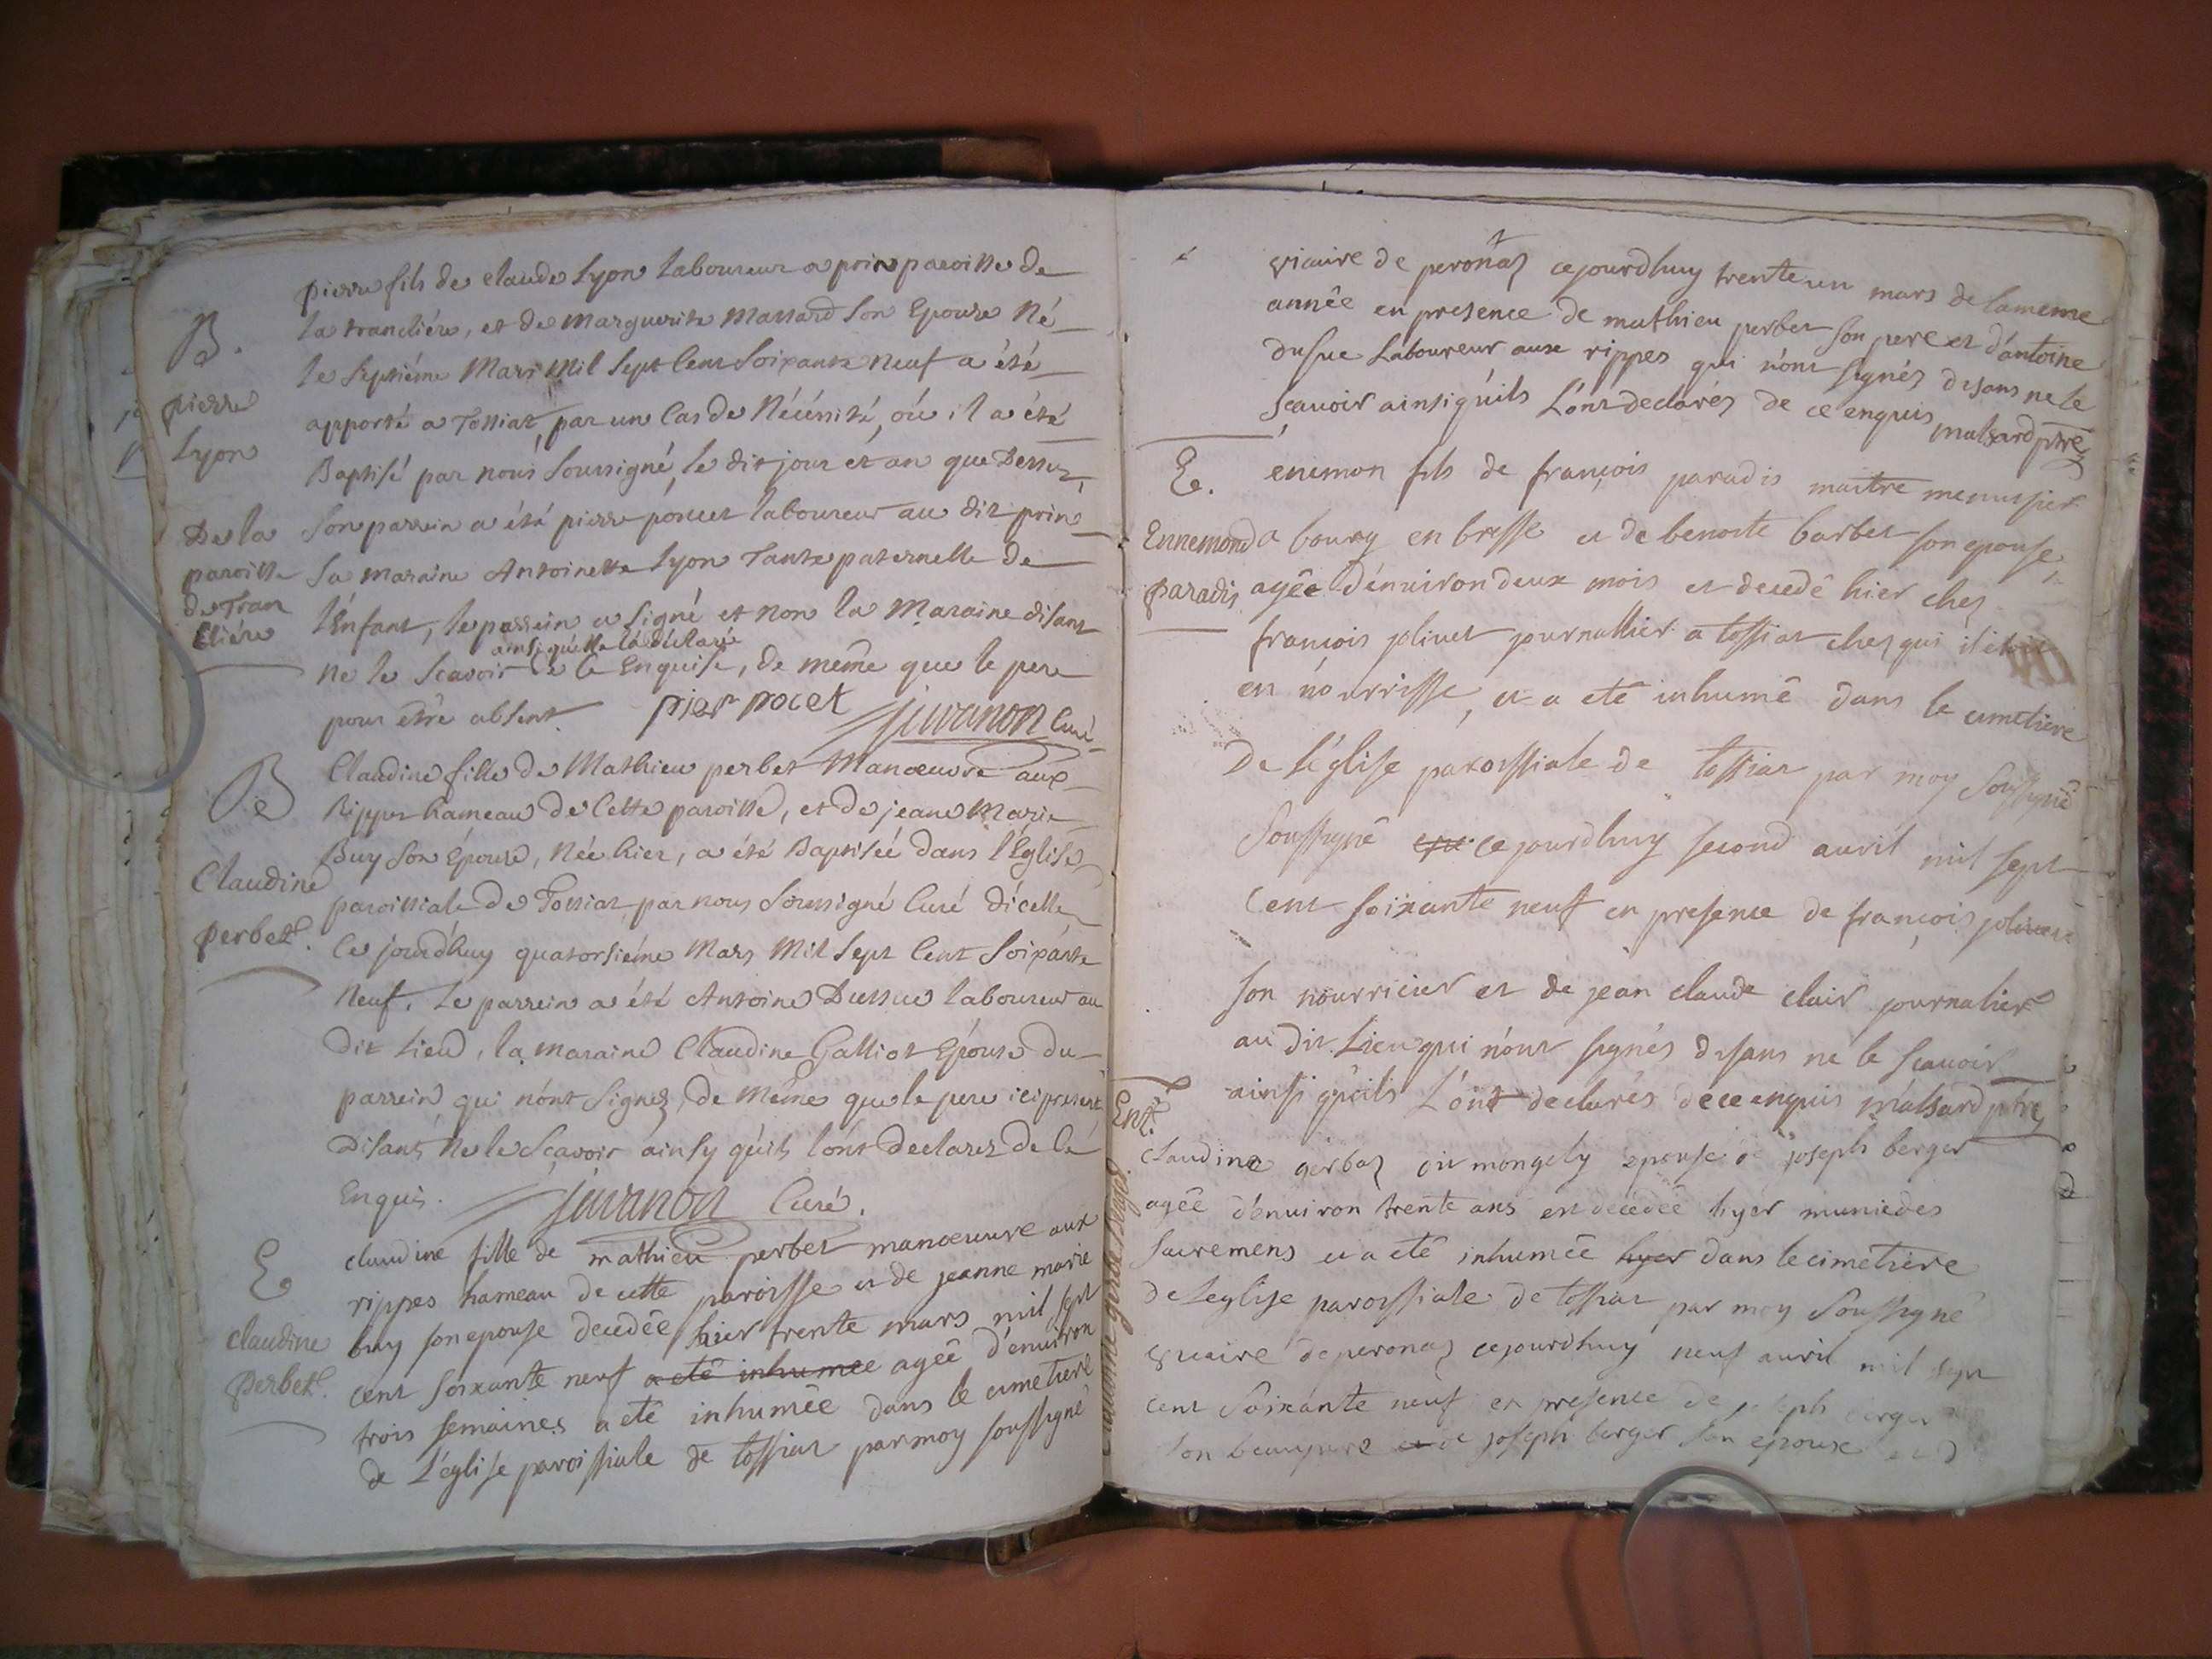 B.
pierre
Lyon
De la
paroisse
de Tran
cliére
pierre fils de claude Lyon laboureur a prin paroisse de
la trancliére, et de Marguerite Massard son Epouse Né
le septiéme Mars Mil Sept Cent Soixante neuf a été
apporté a Tossiat, par un Cas de Nécéssité, où il a été
Baptisé par nous soussigné, le dit jour et an que Dessus,
son parrein a été pierre poncet laboureur au dit prin
sa maraine Antoinette Lyon Tante paternelle de
l'Enfant, le parrein a signé et non la Maraine disant
ainsi qu'elle l'a déclaré
ne le scavoir de ce Enquise, de même que le pere
pour être absent pier pocet juvanon Curé
B
Claudine
perbet.
Claudine fille de Mathieu perbet Manoeuvre aux
Rippes hameau de Cette paroisse, et de jeane Marie
Buy son Epouse, née hier, a été Baptisée dans l'Eglise
paroissiale de Tossiat par nous soussigné Curé d'icelle
Ce jourd'huy quatorsiéme Mars Mil Sept Cent Soixante
Neuf. Le parrein a été Antoine Dussue laboureur au
dit Lieu, la maraine Claudine Galliot Epouse du
parrein qui n'ont signez, de même que le pere ici present
Disant Ne le Scavoir ainsy qu'ils l'ont declarez de Ce
Enquis. juvanon Curé.
E
claudine
perbet.
claudine fille de mathieu perbet manoeuvre aux
rippes hameau de cette paroisse et de jeanne marie
buy son epouse decedée hier trente mars mil sept
cent soixante neuf a eté inhumee agée d'environ
trois semaines a eté inhumée dans le cimetiere
de L'église paroissiale de tossiat par moy soussigné
vicaire de peronas cejourdhuy trente un mars de la meme
année en presence de mathieu perbet son pere et d'antoine
dusue Laboureur aux rippes qui n'ont signés disans ne le
scavoir ainsi qu'ils L'ont declarés de ce enquis malsard ptre
E.
Ennemond
paradis
enemon fils de françois paradis maitre menuisier
a bourg en bresse et de benoite barbet son epouse
agée d'environ deux mois et decedé hier chez
francois jolivet journallier a tossiat chez qui il étoit
en nourrisse, et a eté inhumé dans le cimetiere
De L'église paroissiale de tossiat par moy soussigné
soussigné cejourdhuy second avril mil sept
cent soixante neuf en presence de françois jolivet
son nourricier et de jean claude clair journalier
au dit Lieu qui n'ont signés disans ne le scavoir
ainsi qu'ils L'ont declarés de ce enquis malsard ptre
Ent.
claudine gerbaz dit mongely epouse de joseph berger
agée d'environ trente ans est decedée hyer munie des
sacremens et a eté inhumée hyer dans le cimetiere
de Leglise paroissiale de tossiat par moy soussigné
vicaire de peronas cejourdhuy neuf avril mil sept
cent soixante neuf en presence de joseph berger
son beaupere et de joseph berger son epoux et d